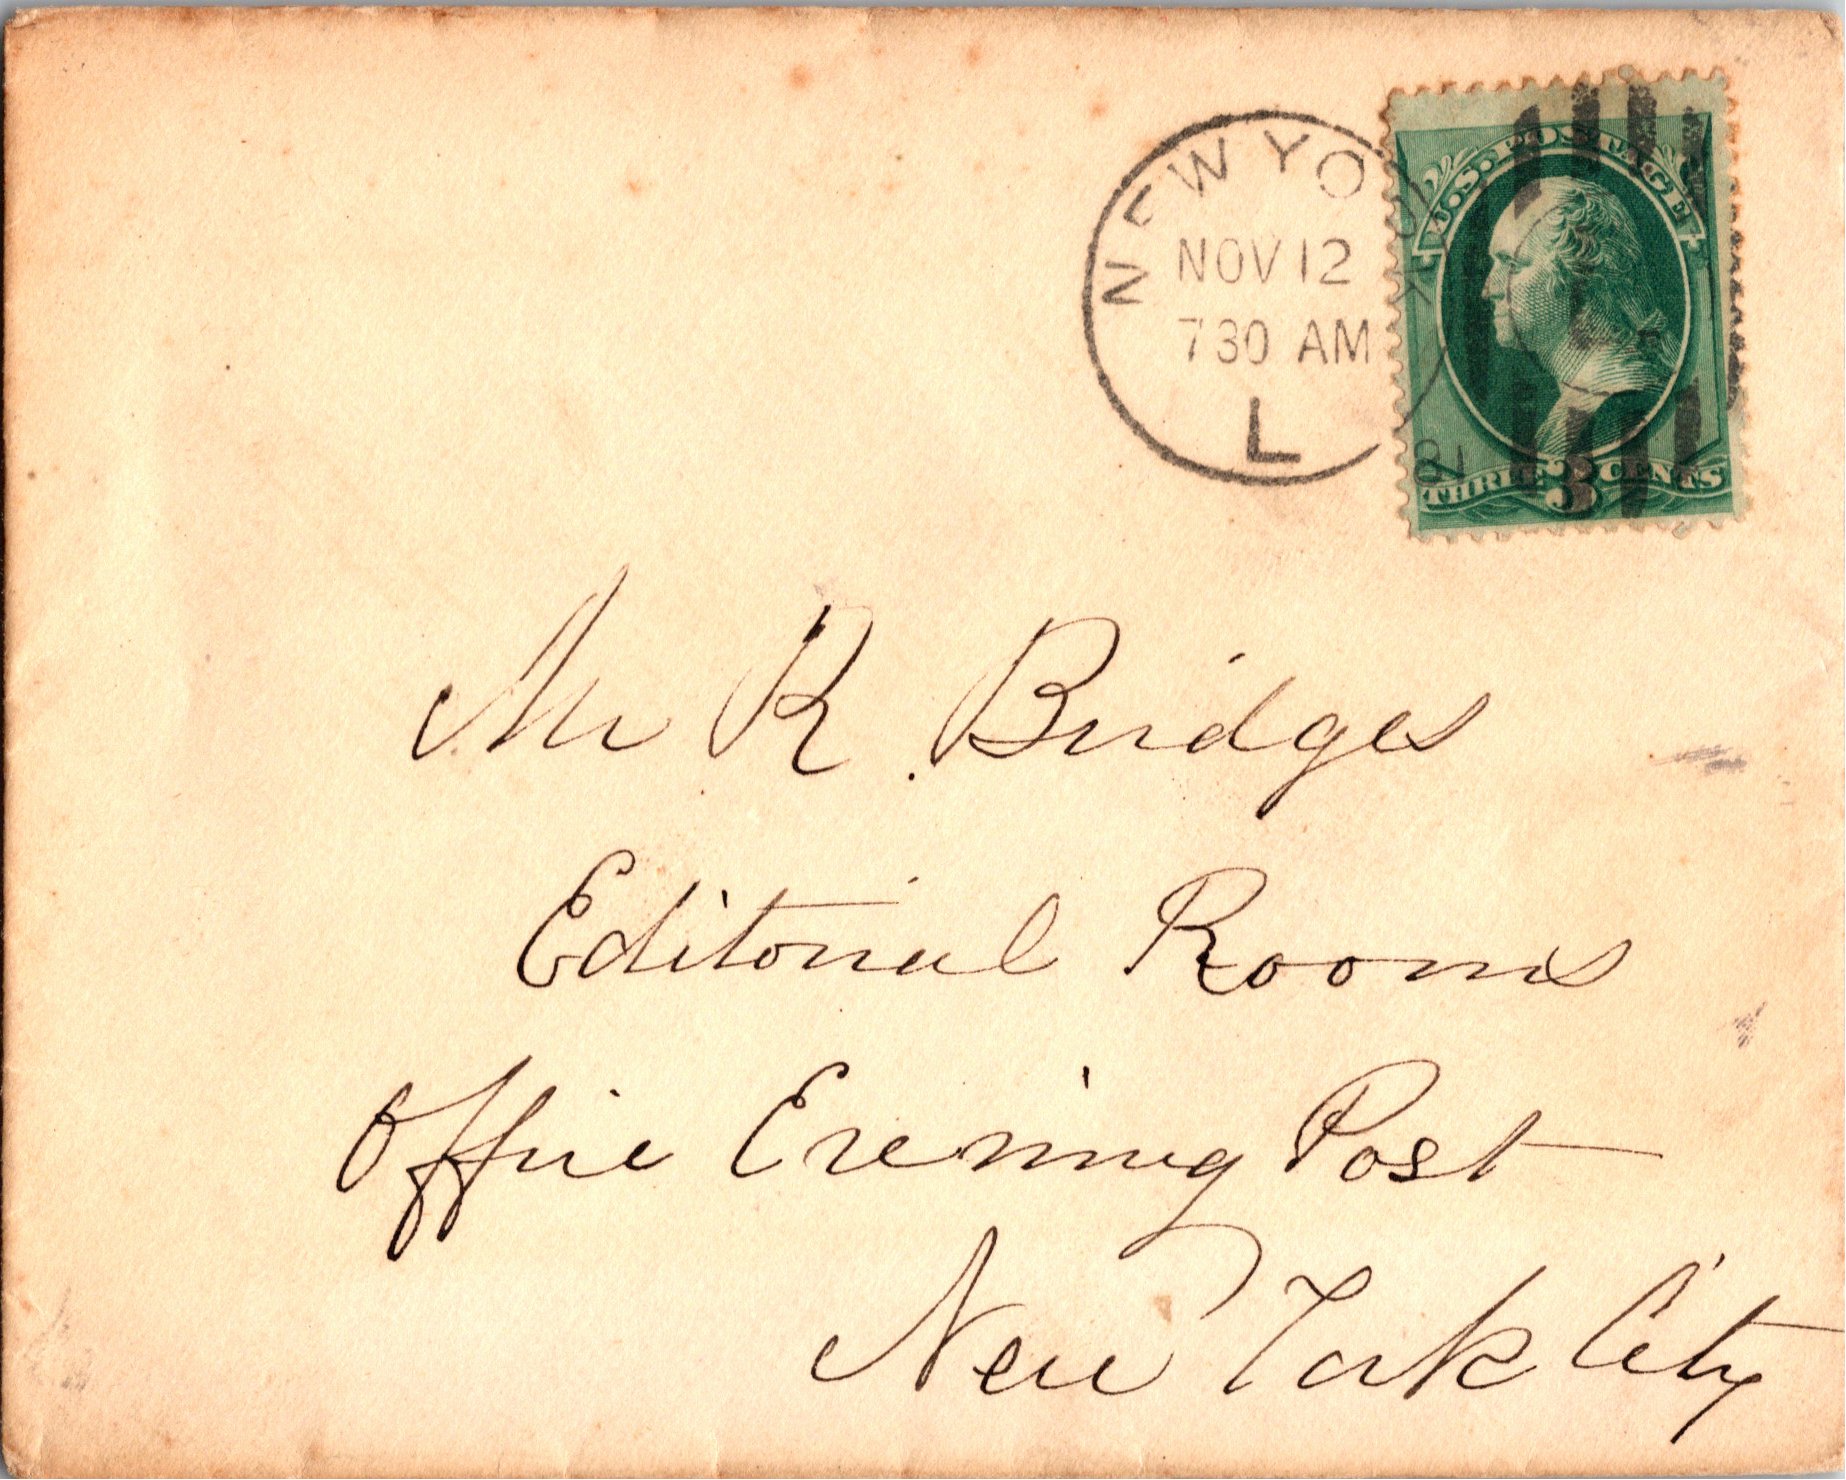 NEW YORK
NOV 12
730 AM
81
L
U.S. POSTAGE
THREE 3 CENTS
Mr R. Bridges
Editorial Rooms
Office Evening Post
New York City